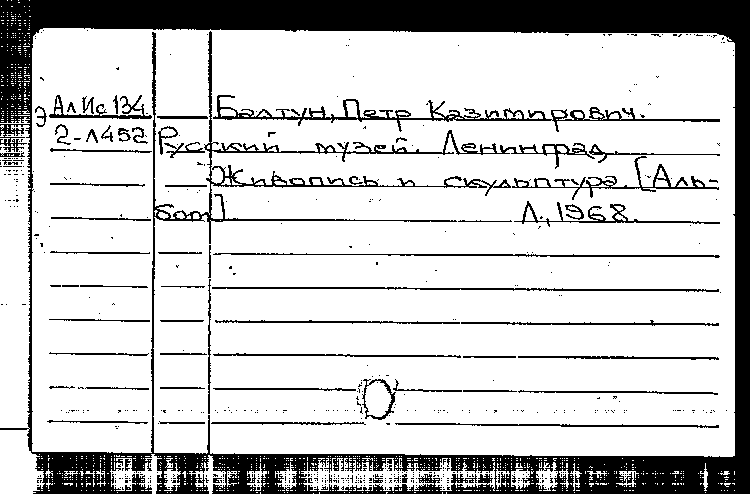 Э АлИс134 Балтун, Петр Казимирович.
2-Л452 Русский музей. Ленинград.
Живопись и скульптура. [Аль-
бом] Л., 1968.